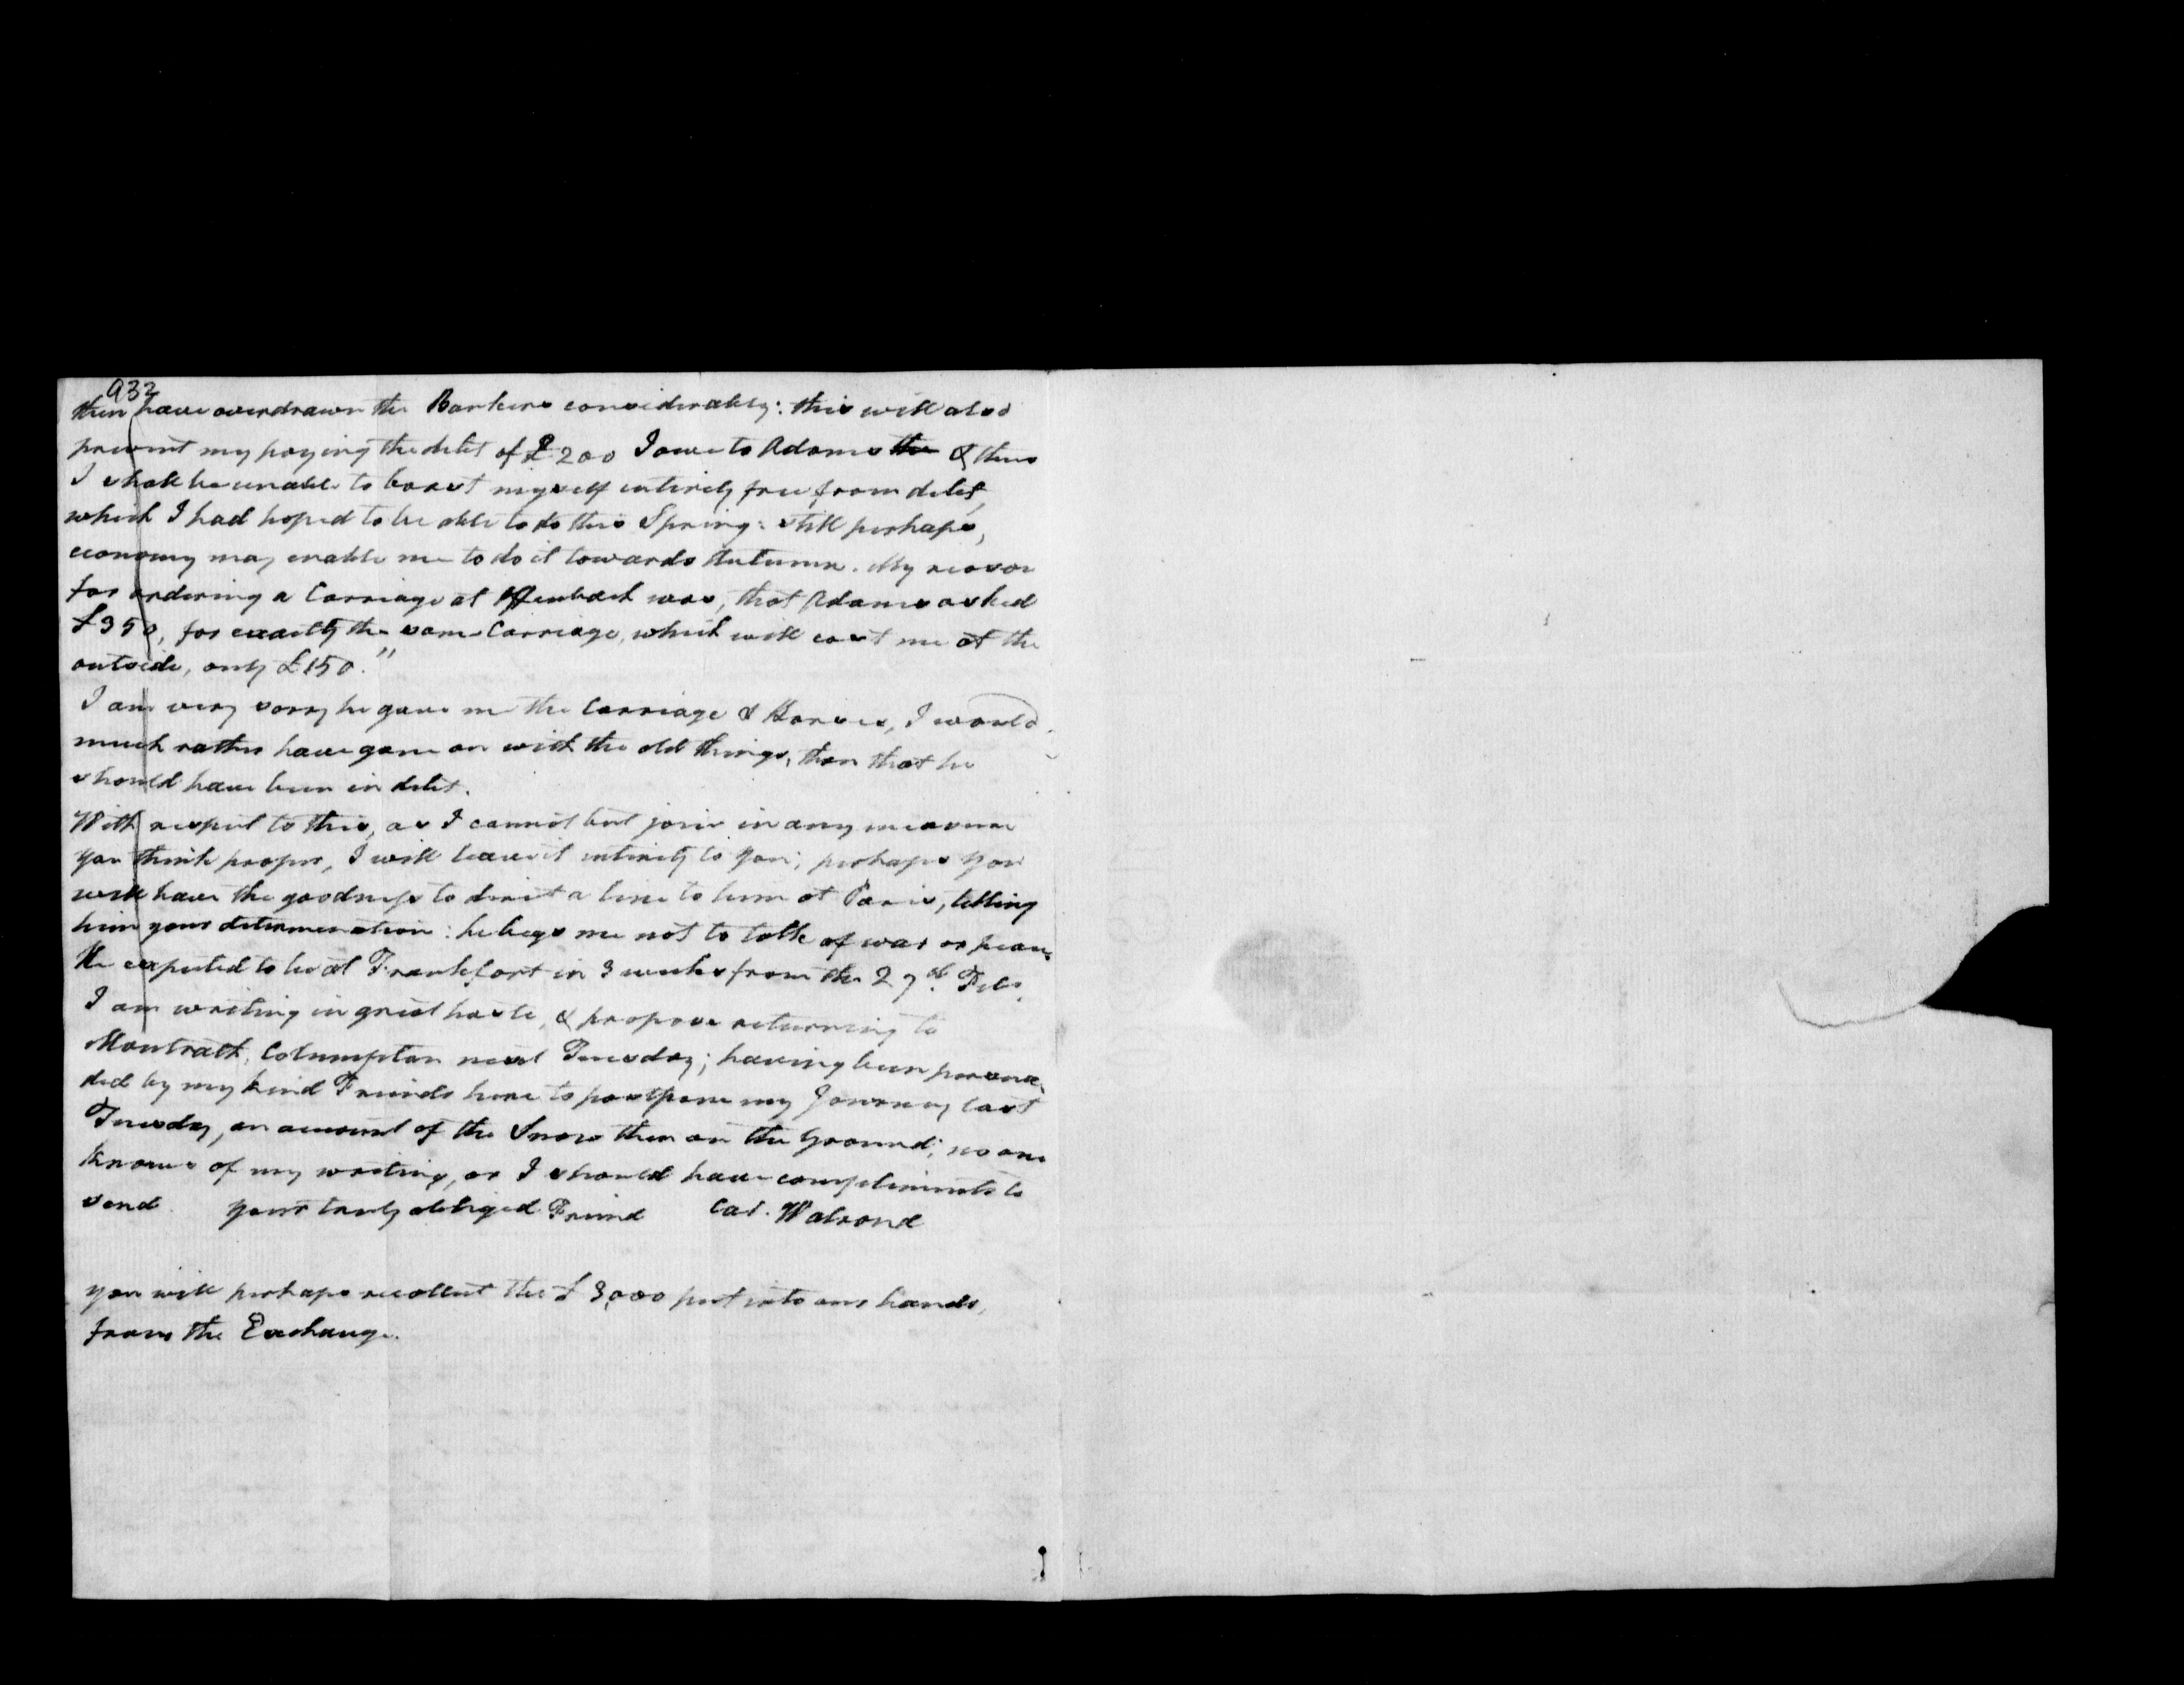 932
then have overdrawn the Bankers considerably: this will also
prevent my paying the debt of £200 I owe to Adams the & thus
I shall be unable to boast myself intirely free from debt,
which I had hoped to be able to do this Spring: still perhaps,
economy may enable me to do it towards Autumn. My reason
for ordering a Carriage at Offenbach was, that Adams asked
£350, for exactly the same Carriage, which will cost me at the
outside, only £150."
I am very sorry he gave me the Carriage & Horses, I would
much rather have gone on with the old things, than that he
should have been in debt.
With respect to this, as I cannot but join in any measure
you think proper, I will leave it intirely to you; perhaps you
will have the goodness to direct a line to him at Paris, telling
him your determination: he begs me not to talk of war or peace
He expected to be at Frankfort in 3 weeks from the 27th. Feb.
I am writing in great haste, & propose returning to
Montrath, Columpton next Tuesday; having been persua-
ded by my kind Friends here to postpone my Journey last
Tuesday, on account of the Snow then on the Ground; no one
knows of my writing, or I should have compliments to
send. your truly obliged Friend Cat. Walrond
you will perhaps recollect the £3,000 put into our hands,
from the Exchange.